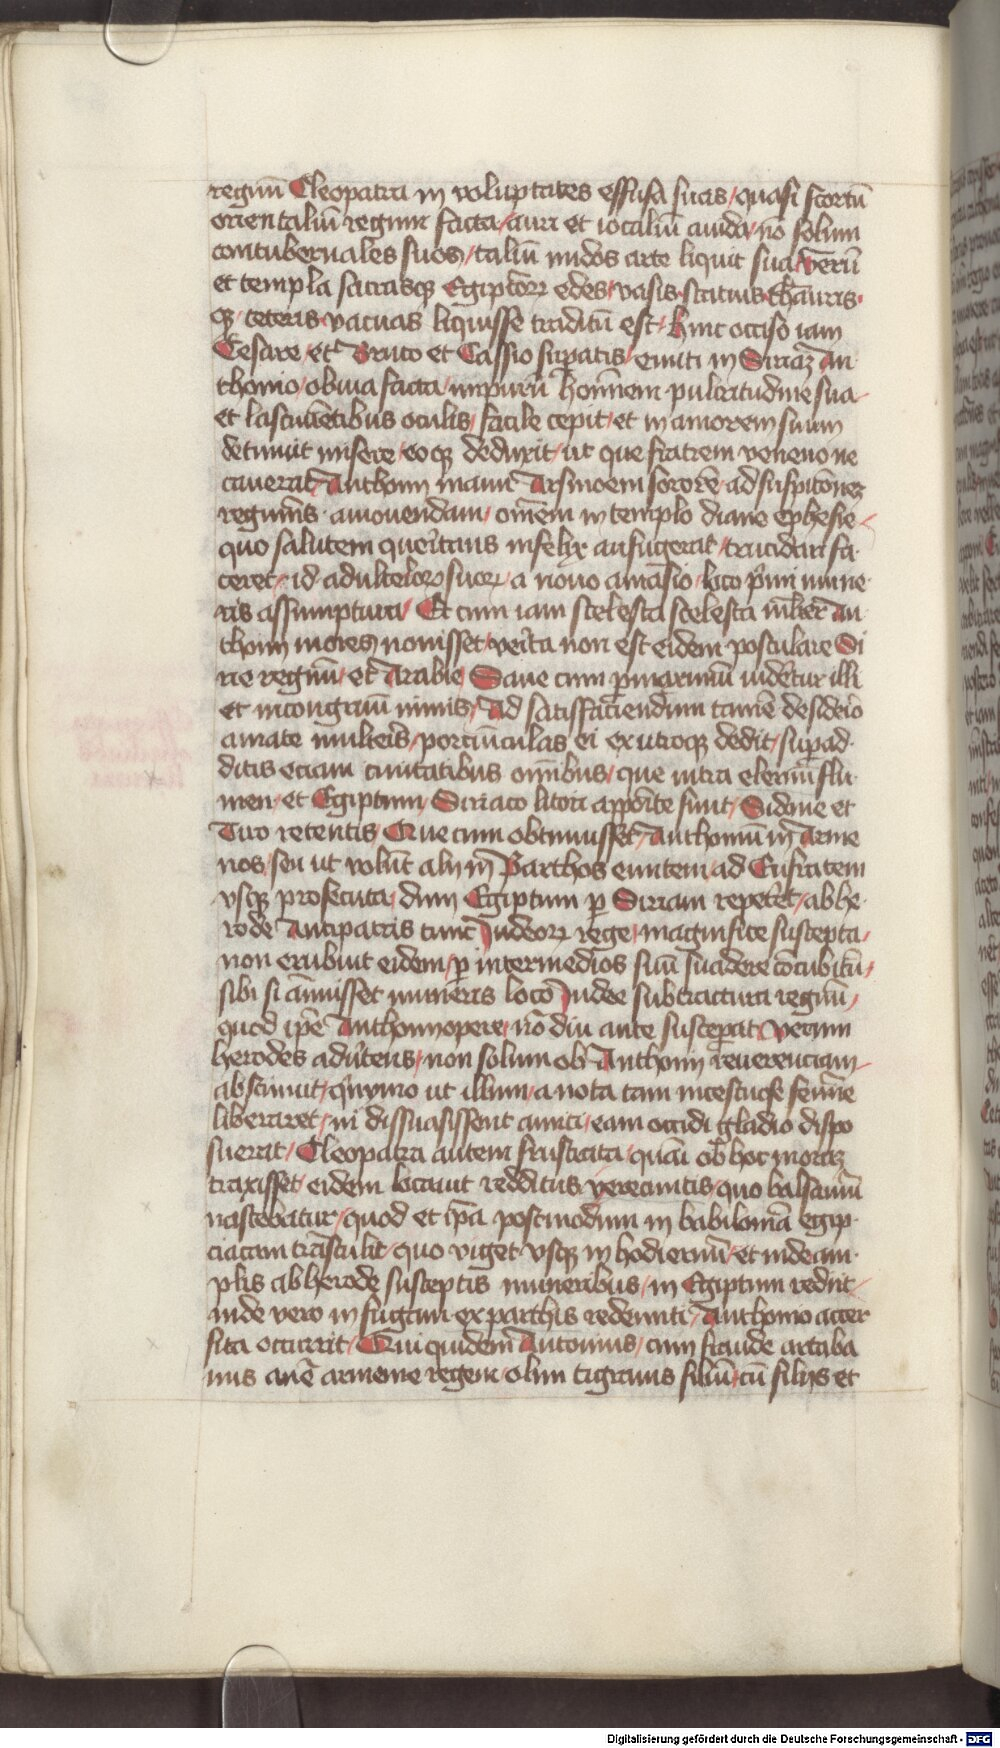 regnū Cleopatra in voluptates effusa suas / quasi scortū
orientaliū regum facta / auri et iocaliū auida / nō solum
contubernales suos / taliū nudos arte liquit sua / verū
et templa sacrasqꝫ Egiptiorꝝ edes / vasis statuis thauris
qꝫ ceteris vacuas liquisse traditū est / hinc occiso iam
Cesare / et Bruto et Cassio supatis / eunti in Siriaꝫ An
thonio / obuia facta / impurū hoiēm pulcritudine sua
et lasciuiētibus oculis / facile cepit / et in amorem suum
detinuit misere / eoqꝫ deduxit / ut que fratrem veneno ne
cauerat / Anthonij manu Arsinoem sororē / ad suspitōneꝫ
regiminis amouendam / omēm in templo diane ephesie /
quo salutem queritans infelix aufugerat / trucidari fa
ceret / id adulteiorꝝ suorꝝ / a nouo amasio / loco p̄mij mune
ris assumptura / Et cum iam scelesta scelesta mlier An
thonij mores nouisset / verita non est eidem postulare Si
rie regnū / et Arabie / Sane cum pmaximū uideretur illi
et incongruū nimis / Ad satisfaciendum tamē desideio
amate mulieris / portiūculas ei ex utroqꝫ dedit / supad
ditis eciam ciuitatibus omībus / que intra eleriū flu
men / et Egiptum / Siriaco litori appoite sunt / Sidone et
Tiro retentis / Que cum obtinuisset / Anthoniū in Arme
nos / seu ut volūt alij in Parthos euntem / ad Eufratem
vsqꝫ prosecuta / dum Egiptum p Siriam repetēt / ab he
rode Antipatris tunc Iudeorꝝ rege / magnifice suscepta /
non erubuit eidem / p intermedios suū suadere cōcubitū /
sibi si ānuisset muneris loco Iudee subtractura regnū /
quod ip̄e Anthonij opere / nō diu ante suscepat / Verum
herodes aduertens / non solum ob Anthonij reuerenciam
abstinuit / quinymo ut illum / a nota tam incestuose femīe
liberaret / ni dissuasissent amici / eam occidi gladio dispo
suerat / Cleopatra autem frustrata / quasi ob hoc moraꝫ
traxisset / eidem locauit redditus yerecuntis / quo balsamū
nascebatur / quod et ip̄a postmodum in babiloniā egip
ciacam trāstulit / quo viget vsqꝫ in hodiernū / et inde am
plis ab herode susceptis muneribus / in Egiptum redijt
inde vero in fugam ex parthis redeunti / Anthonio accer
sita occurrit / Qui quidem Antonius / cum fraude artaba
nus anē armenie regem / olim tigranis filiū / cū filijs et
Digitalisierung gefördert durch die Deutsche Forschungsgemeinschaft - DFG